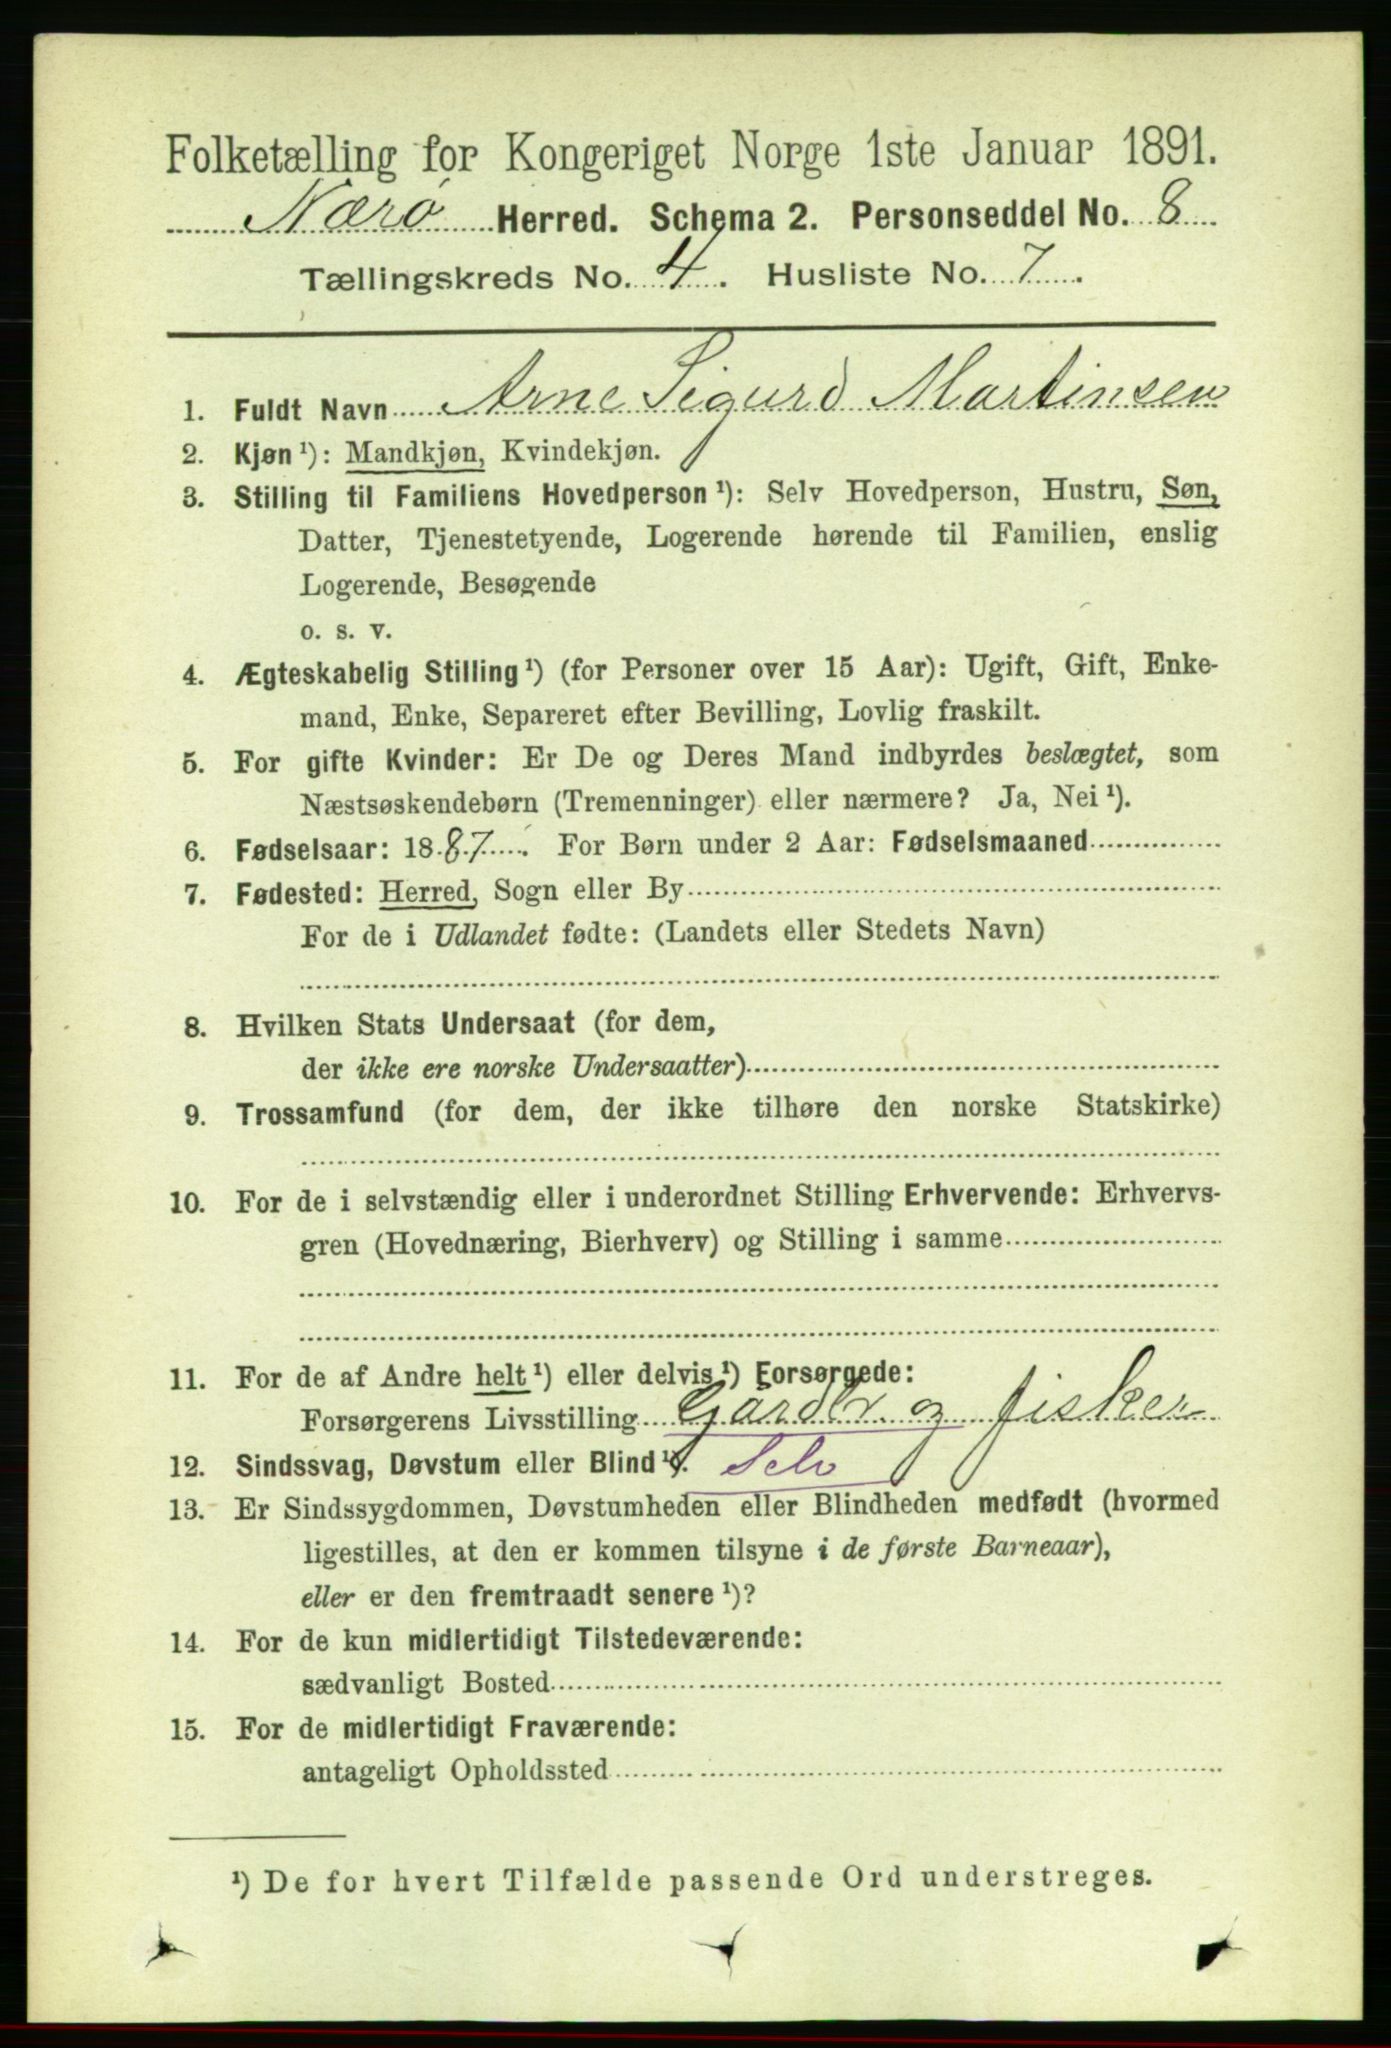 Folketælling for Kongeriget Norge 1ste Januar 1891.
Nærö Herred. Schema 2. Personseddel No. 8
Tællingskreds No. 4. Husliste No. 7.
1. Fuldt Navn Arne Sigurd Martinsen
2. Kjøn ¹): Mandkjøn, Kvindekjøn.
3. Stilling til Familiens Hovedperson ¹): Selv Hovedperson, Hustru, Søn,
Datter, Tjenestetyende, Logerende hørende til Familien, enslig
Logerende, Besøgende
o. s. v.
4. Ægteskabelig Stilling ¹) (for Personer over 15 Aar): Ugift, Gift, Enke-
mand, Enke, Separeret efter Bevilling, Lovlig fraskilt.
5. For gifte Kvinder: Er De og Deres Mand indbyrdes beslægtet, som
Næstsøskendebørn (Tremenninger) eller nærmere? Ja, Nei ¹).
6. Fødselsaar: 1887. For Børn under 2 Aar: Fødselsmaaned
7. Fødested: Herred, Sogn eller By
For de i Udlandet fødte: (Landets eller Stedets Navn)
8. Hvilken Stats Undersaat (for dem,
der ikke ere norske Undersaatter)
9. Trossamfund (for dem, der ikke tilhøre den norske Statskirke)
10. For de i selvstændig eller i underordnet Stilling Erhvervende: Erhvervs-
gren (Hovednæring, Bierhverv) og Stilling i samme
11. For de af Andre helt ¹) eller delvis ¹) Forsørgede:
Forsørgerens Livsstilling Gårdbr. og fisker
12. Sindssvag, Døvstum eller Blind ¹). Selv
13. Er Sindssygdommen, Døvstumheden eller Blindheden medfødt (hvormed
ligestilles, at den er kommen tilsyne i de første Barneaar),
eller er den fremtraadt senere ¹)?
14. For de kun midlertidigt Tilstedeværende:
sædvanligt Bosted
15. For de midlertidigt Fraværende:
antageligt Opholdssted
¹) De for hvert Tilfælde passende Ord understreges.